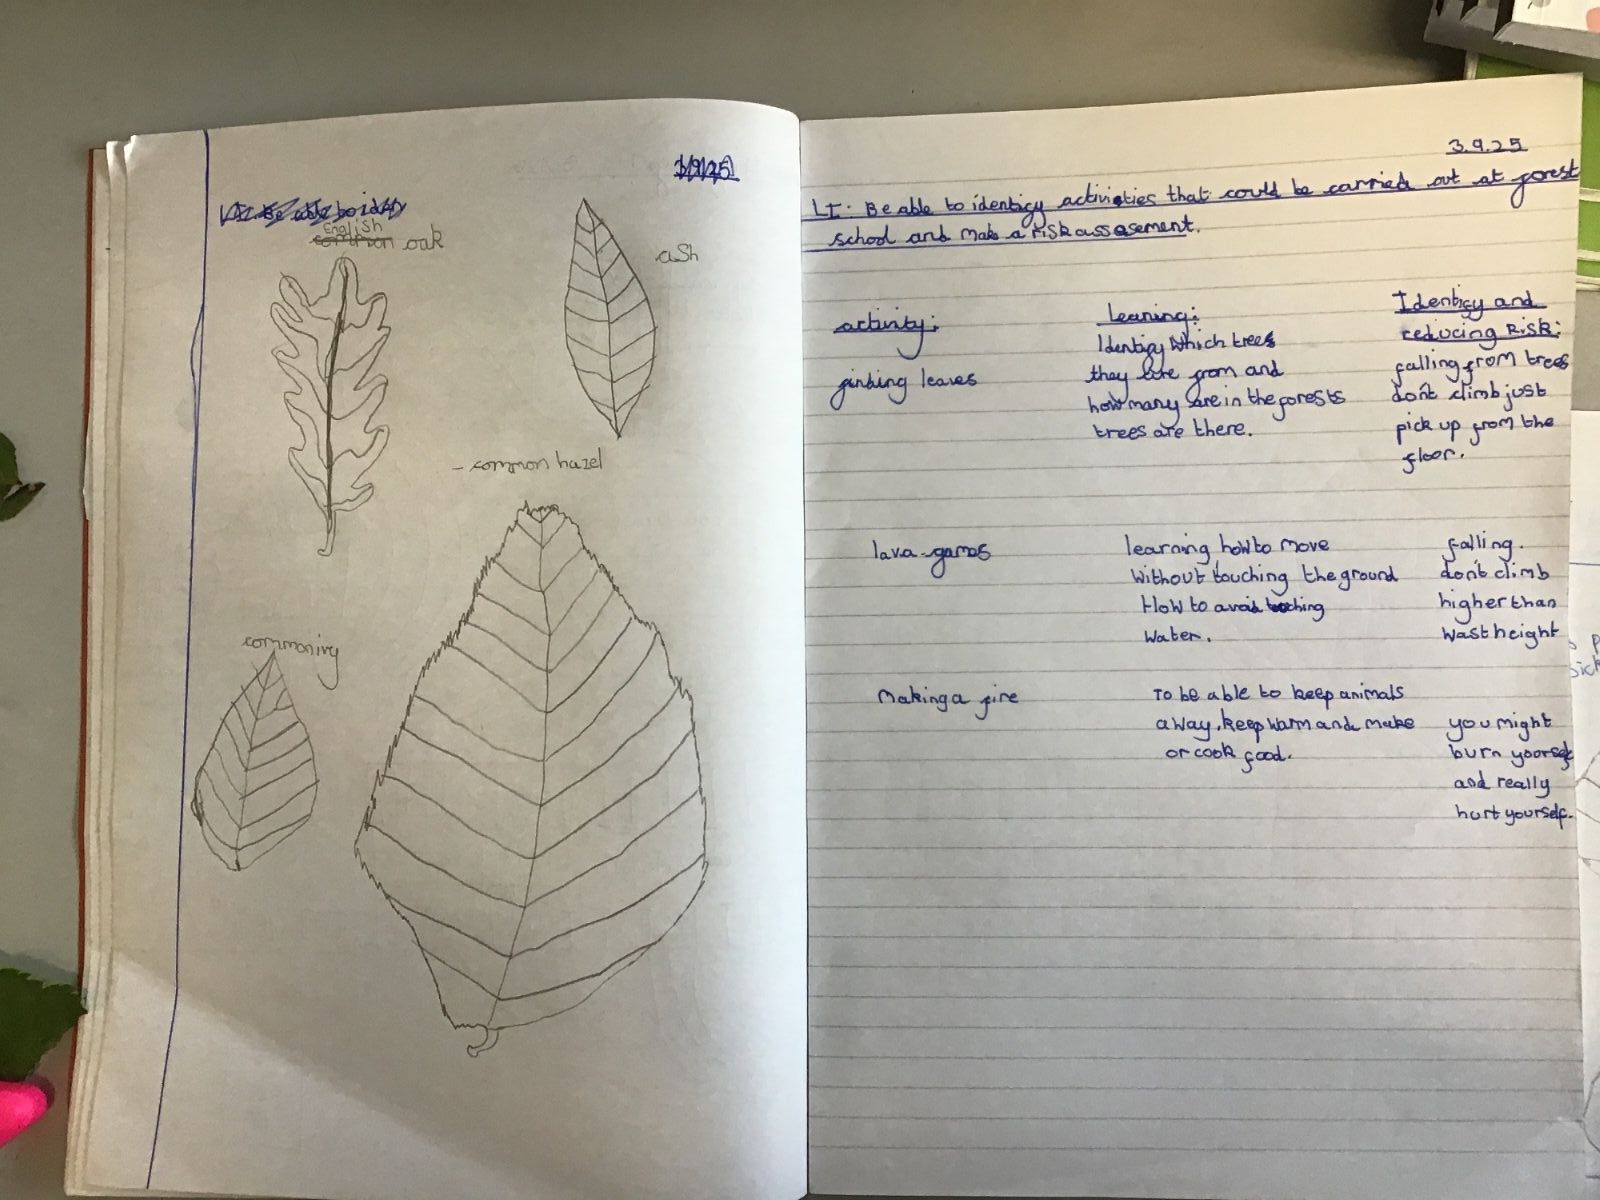 English
common oak
ash
- common hazel
common ivy
3.9.25
LI. Be able to identify activities that could be carried out at forest
school and make a risk assesement.
activity:
leaning:
Identify and
reducing Risk:
finding leaves
Identify which trees
they are from and
how many are in the forests
trees are there.
falling from trees
don't climb just
pick up from the
floor.
lava games
learning how to move
without touching the ground
How to avoid touching
water.
falling.
don't climb
higher than
wast height
Making a fire
To be able to keep animals
away, keep warm and make
or cook food.
you might
burn yoorself
and really
hurt yourself.